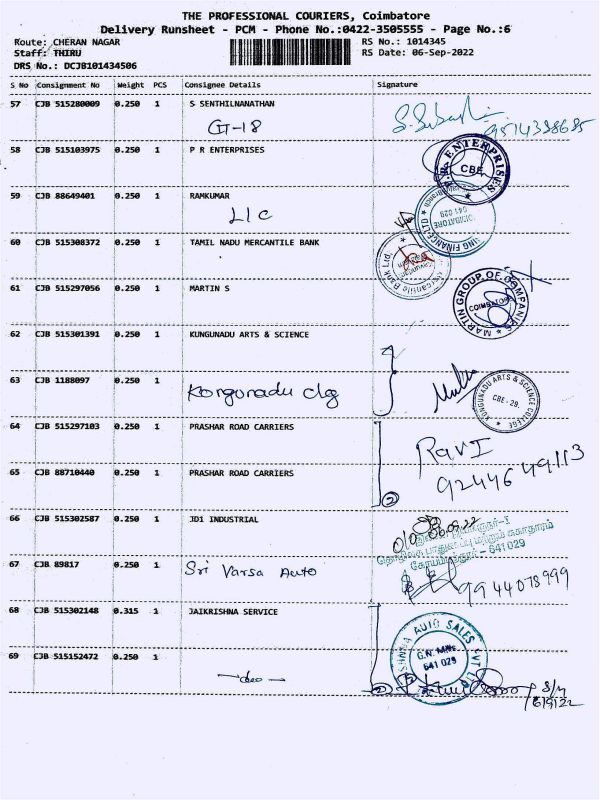 THE PROFESSIONAL COURIERS, Coimbatore
Delivery Runsheet - PCM - Phone No.:0422-3505555 - Page No.:6
Route: CHERAN NAGAR
RS No.: 1014345
Staff: THIRU
RS Date: 06-Sep-2022
DRS No.: DCJB101434506
S No Consignment No Weight PCS Consignee Details Signature
57 CJB 515280009 0.250 1 S SENTHILNANATHAN
GT-18
58 CJB 515103975 0.250 1 P R ENTERPRISES
ENTERPRISES
CBE
59 CJB 88649401 0.250 1 RAMKUMAR
LIC
641 029
60 CJB 515308372 0.250 1 TAMIL NADU MERCANTILE BANK
61 CJB 515297056 0.250 1 MARTIN S
MARTIN GROUP OF COMPANIES
COIMBATORE
62 CJB 515301391 0.250 1 KUNGUNADU ARTS & SCIENCE
63 CJB 1188097 0.250 1
Kongunadu clg
KONGUNADU ARTS & SCIENCE COLLEGE
CBE - 29.
64 CJB 515297103 0.250 1 PRASHAR ROAD CARRIERS
Ravi
65 CJB 88710440 0.250 1 PRASHAR ROAD CARRIERS
9244649113
2
66 CJB 515302587 0.250 1 JD1 INDUSTRIAL
06.09.22
641 029
67 CJB 89817 0.250 1
Sri Varsa Auto
9944078999
68 CJB 515302148 0.315 1 JAIKRISHNA SERVICE
AUTO SALES PVT LTD
641 029
69 CJB 515152472 0.250 1
-do-
2
6/9/22